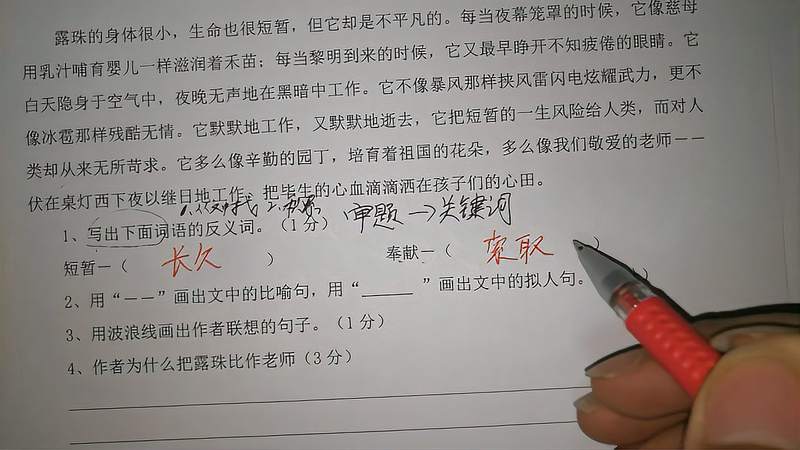 露珠的身体很小，生命也很短暂，但它却是不平凡的。每当夜幕笼罩的时候，它像慈母
用乳汁哺育婴儿一样滋润着禾苗；每当黎明到来的时候，它又最早睁开不知疲倦的眼睛。它
白天隐身于空气中，夜晚无声地在黑暗中工作。它不像暴风那样挟风雷闪电炫耀武力，更不
像冰雹那样残酷无情。它默默地工作，又默默地逝去，它把短暂的一生风险给人类，而对人
类却从来无所苛求。它多么像辛勤的园丁，培育着祖国的花朵，多么像我们敬爱的老师－－
伏在桌灯西下夜以继日地工作，把毕生的心血滴滴洒在孩子们的心田。
1.从文中找 2.
审题→关键词
1、写出下面词语的反义词。（1分）
短暂一（ 长久 ） 奉献一（ 索取 ）
2、用“－－”画出文中的比喻句，用“______ ”画出文中的拟人句。 ）
3、用波浪线画出作者联想的句子。（1分）
4、作者为什么把露珠比作老师（3分）